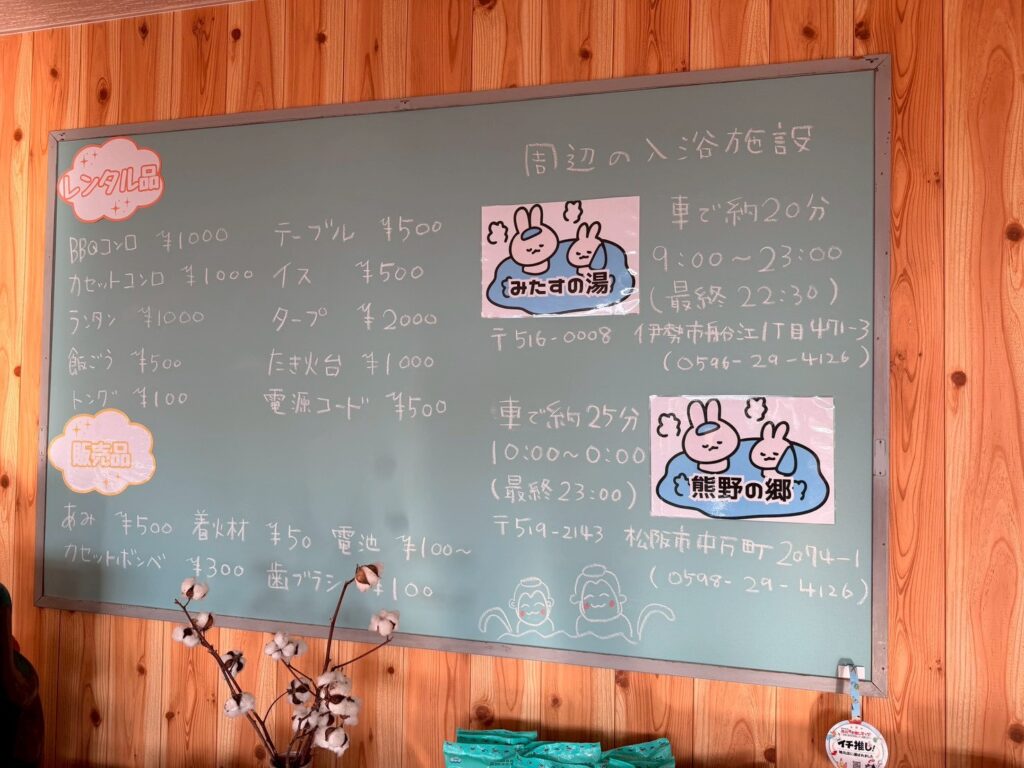 レンタル品
BBQコンロ ¥1000
カセットコンロ ¥1000
ランタン ¥1000
飯ごう ¥500
トング ¥100
テーブル ¥500
イス ¥500
タープ ¥2000
たき火台 ¥1000
電源コード ¥500
販売品
あみ ¥500 着火材 ¥50 電池 ¥100~
カセットボンベ ¥300 歯ブラシ ¥100
周辺の入浴施設
みたすの湯
車で約20分
9:00~23:00
(最終22:30)
〒516-0008 伊勢市船江1丁目471-3
(0596-29-4126)
車で約25分
10:00~0:00
(最終23:00)
熊野の郷
〒519-2143 松阪市中万町2074-1
(0598-29-4126)
イチ推し!